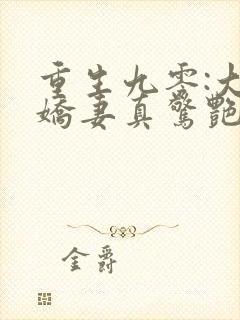 重生九零:大
娇妻真惊艳
金爵